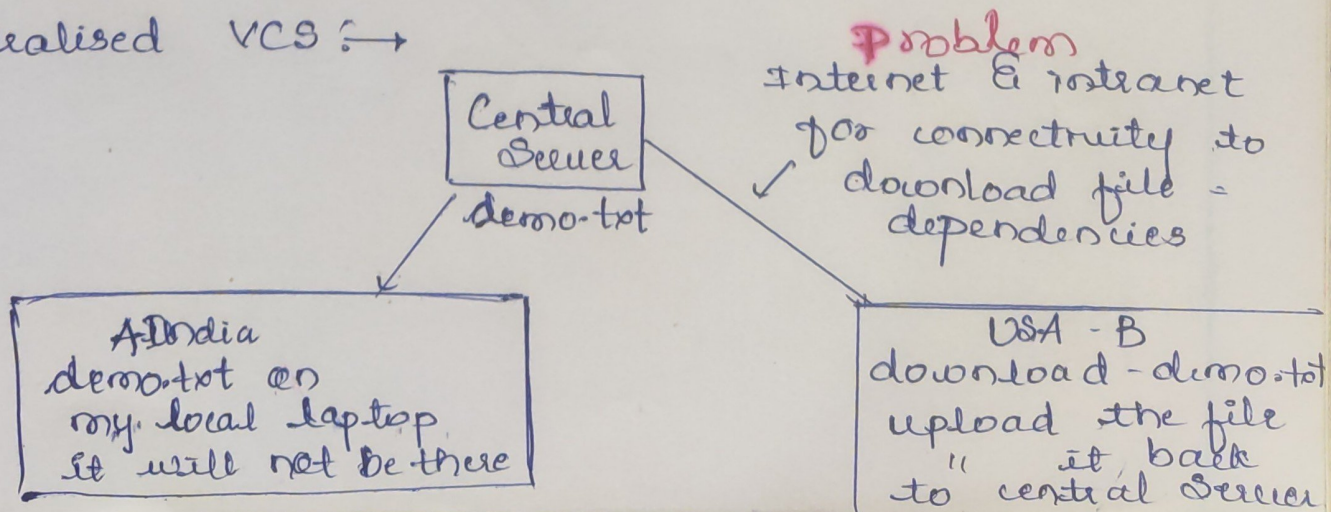 ealised VCS :→
Problem
Internet & intranet
for connectivity to
download file =
dependencies
Central
Server
demo.txt
A-India
demo.txt on
my local laptop
it will not be there
USA - B
download - demo.txt
upload the file
" it back
to central Server